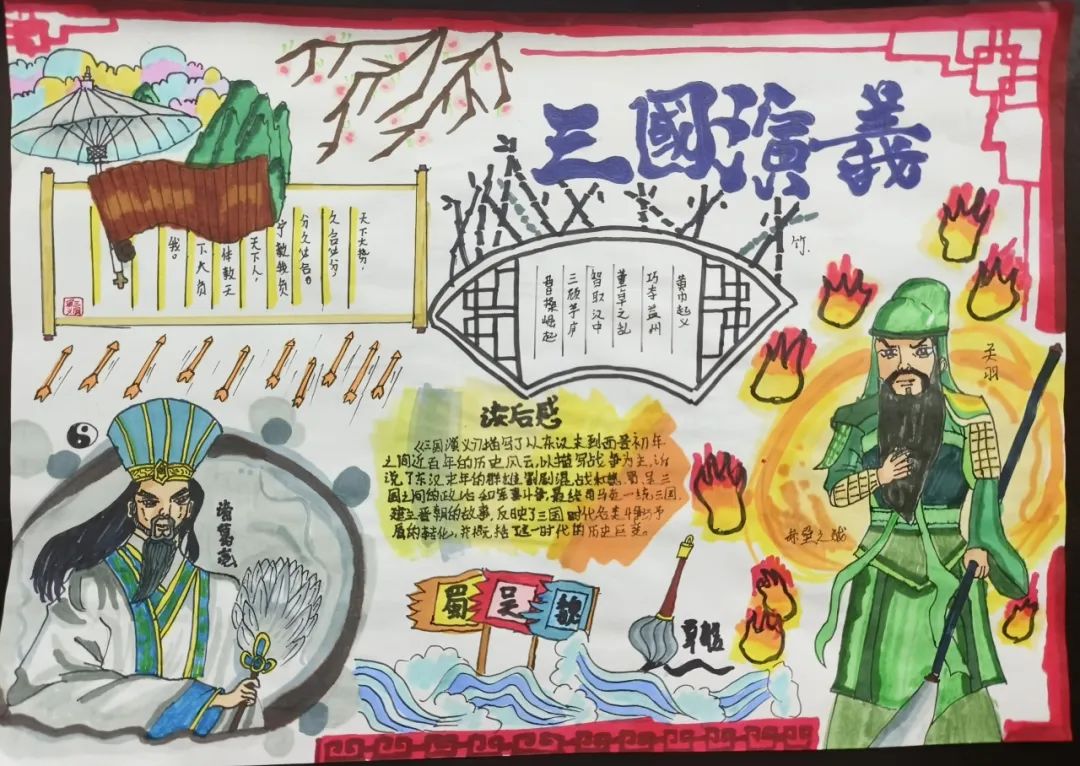 三國演義
天下大势，
久合必分
分久必合。
宁教我负
天下人，
休教天
下人负
我。
竹
黄巾起义
巧夺益州
董卓之乱
智取汉中
三顾茅庐
曹操崛起
关羽
读后感
《三国演义》描写了从东汉末到西晋初年
之间近百年的历史风云，以描写战争为主，诉
说了东汉末年的群雄割剧混战和魏、蜀、吴三
国之间的政治和军事斗争，最终司马炎一统三国，
建立晋朝的故事，反映了三国时代各类斗争与矛
盾的转化，并概括这一时代的历史巨变。
诸葛亮
赤壁之战
蜀
吴
魏